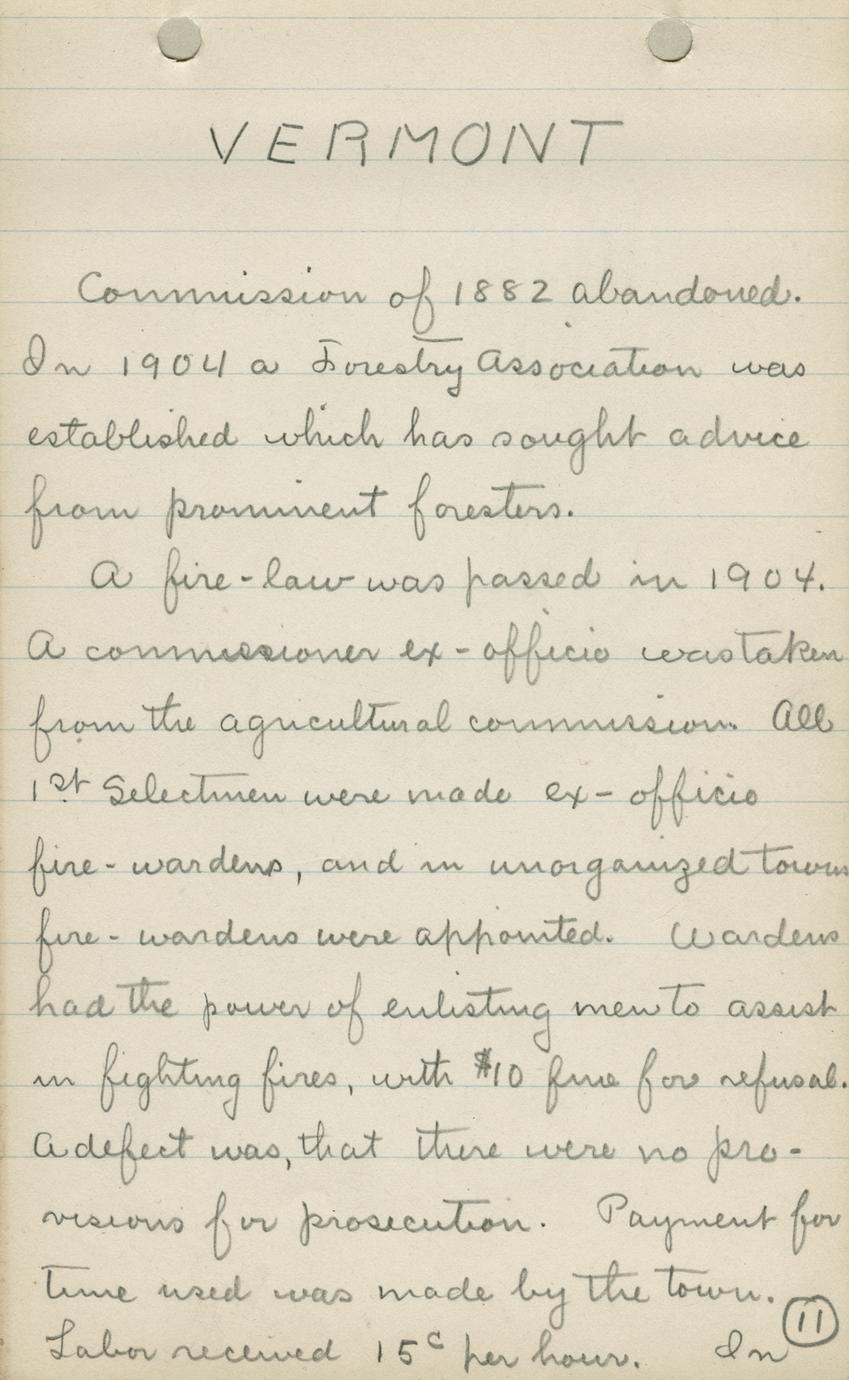 VERMONT
Commission of 1882 abandoned.
In 1904 a Forestry Association was
established which has sought advice
from prominent foresters.
A fire-law was passed in 1904.
A commissioner ex-officio was taken
from the agricultural commission. All
1st Selectmen were made ex-officio
fire-wardens, and in unorganized towns
fire-wardens were appointed. Wardens
had the power of enlisting men to assist
in fighting fires, with $10 fine for refusal.
A defect was, that there were no pro-
visions for prosecution. Payment for
time used was made by the town.
Labor received 15c per hour. In
11